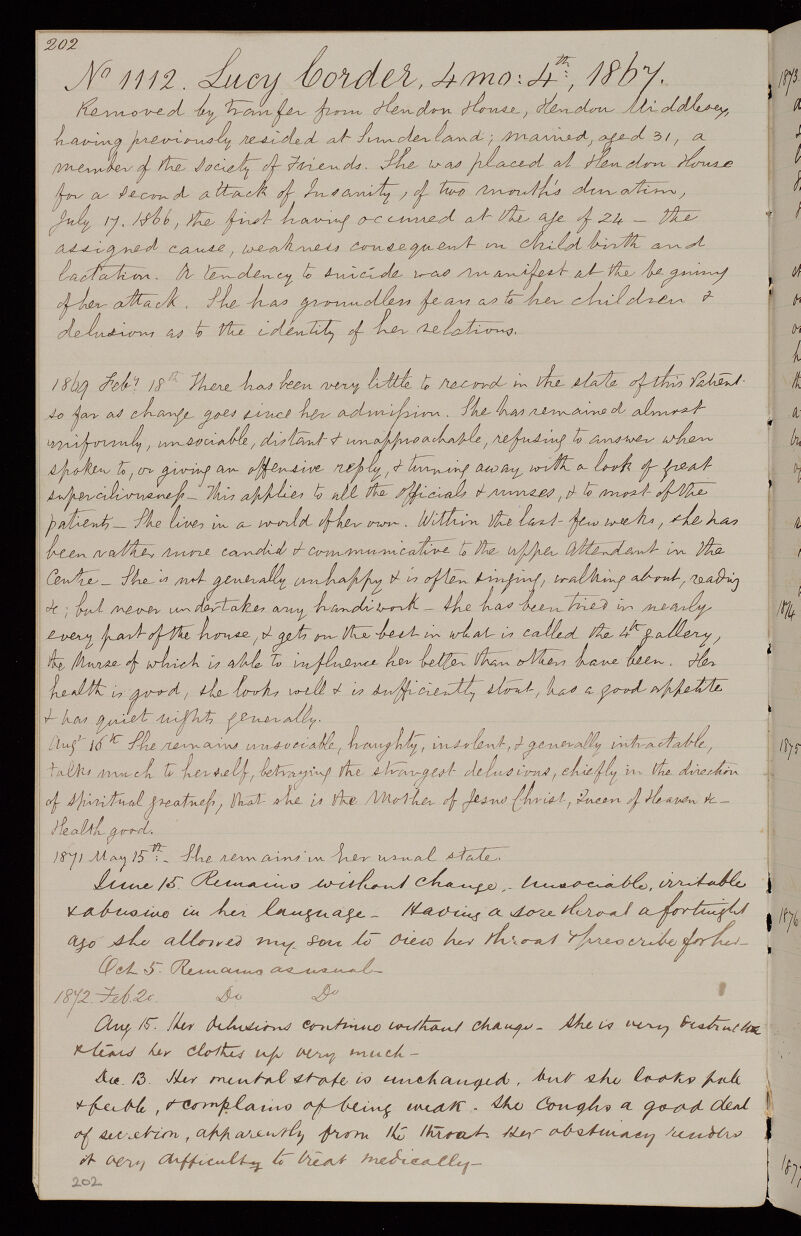 202
No 1112. Lucy Corder, 4 mo: 4th:, 1867.
Removed by tranfer from Hendon House, Hendon Middlesex,
having previously resided at Sunderland; married, aged 31, a
member of the Society of Friends. She was placed at Hendon House
for a second attack of Insanity, of two month's duration,
July 17. 1866, the first having occurred at the age of 24 – the
assigned cause, weakness consequent on child birth and
lactation. A tendency to suicide was manifest at the begining
of her attack. She has groundless fears as to her children &
delusions as to the identity of her relations.
1869 Feby 18th There has been very little to record in the state of this Patient
so far as change goes since her admission. She has remained almost
uniformly, unsociable, distant & unapproachable, refusing to answer when
spoken to, or giving an offensive reply, & turning away with a look of great
superciliousness – This applies to all the officials & nurses, & to most of the
patients – She lives in a world of her own. Within the last few weeks, she has
been rather more candid & communicative to the upper Attendant in the
Centre – She is not generally unhappy & is often singing, walking about, reading
&c; but never undertakes any handiwork – She has been tried in nearly
every part of the house, & gets on the best in what is called the 4th gallery,
the Nurse of which is able to influence her better than others have been. Her
health is good, she looks well & is sufficiently stout, has a good appetite
& has quiet nights generally.
Augt 16th She remains unsociable, haughty, insolent, & generally intractable,
talks much to herself, betraying the strangest delusions, chiefly in the direction
of spiritual greatness, that she is the Mother of Jesus Christ, Queen of Heaven &c –
Health good.
1871 May 15th: – She remains in her usual state.
June 15. Remains without change, – unsociable, irritable
& abusive in her language – Having a sore throat a fortnight
ago she allowed my son to view her throat & prescribe for her –
Oct 5. Remains as usual –
1872. Feb. 20. Do Do
Aug 15. Her delusions continue without change – She is very destructive
& tears her clothes up very much –
Dec. 13. Her mental state is unchanged, but she looks pale
& feeble, & complains of being weak. She coughs a good deal
of secretion, apparently from the throat. Her obstinacy renders
it very difficulty to treat medically –
202
1873
1874
1875
1876
187